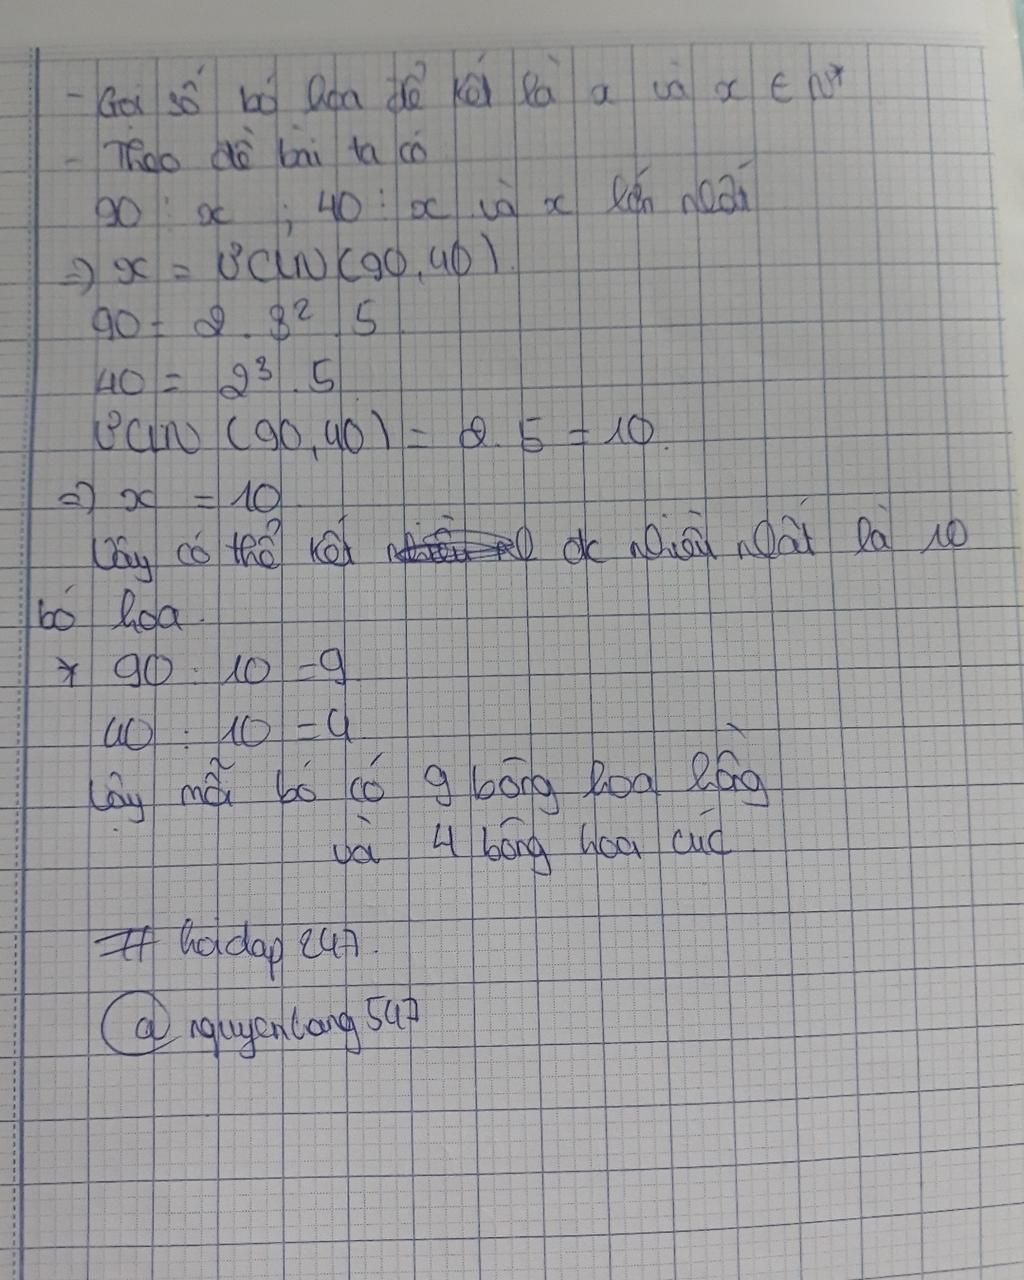 - Gọi số bó hoa để kết là x và x ∈ N*
- Theo đề bài ta có
90 ⋮ x ; 40 ⋮ x và x lớn nhất
=> x = ƯCLN (90,40).
90 = 2 . 3² . 5
40 = 2³ . 5
ƯCLN (90,40) = 2. 5 = 10.
=> x = 10
Vậy có thể kết đc nhiều nhất là 10
bó hoa.
* 90 : 10 = 9
40 : 10 = 4
Vậy mỗi bó có 9 bông hoa hồng
và 4 bông hoa cúc
# hoidap247.
@ nguyenlong547